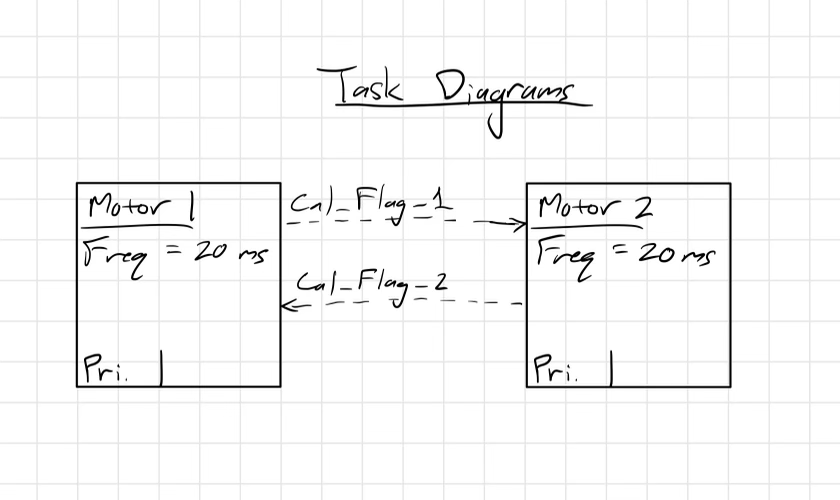 Task Diagrams
Motor 1
Freq = 20 ms
Pri. 1
Cal_Flag_1
Cal_Flag_2
Motor 2
Freq = 20 ms
Pri. 1